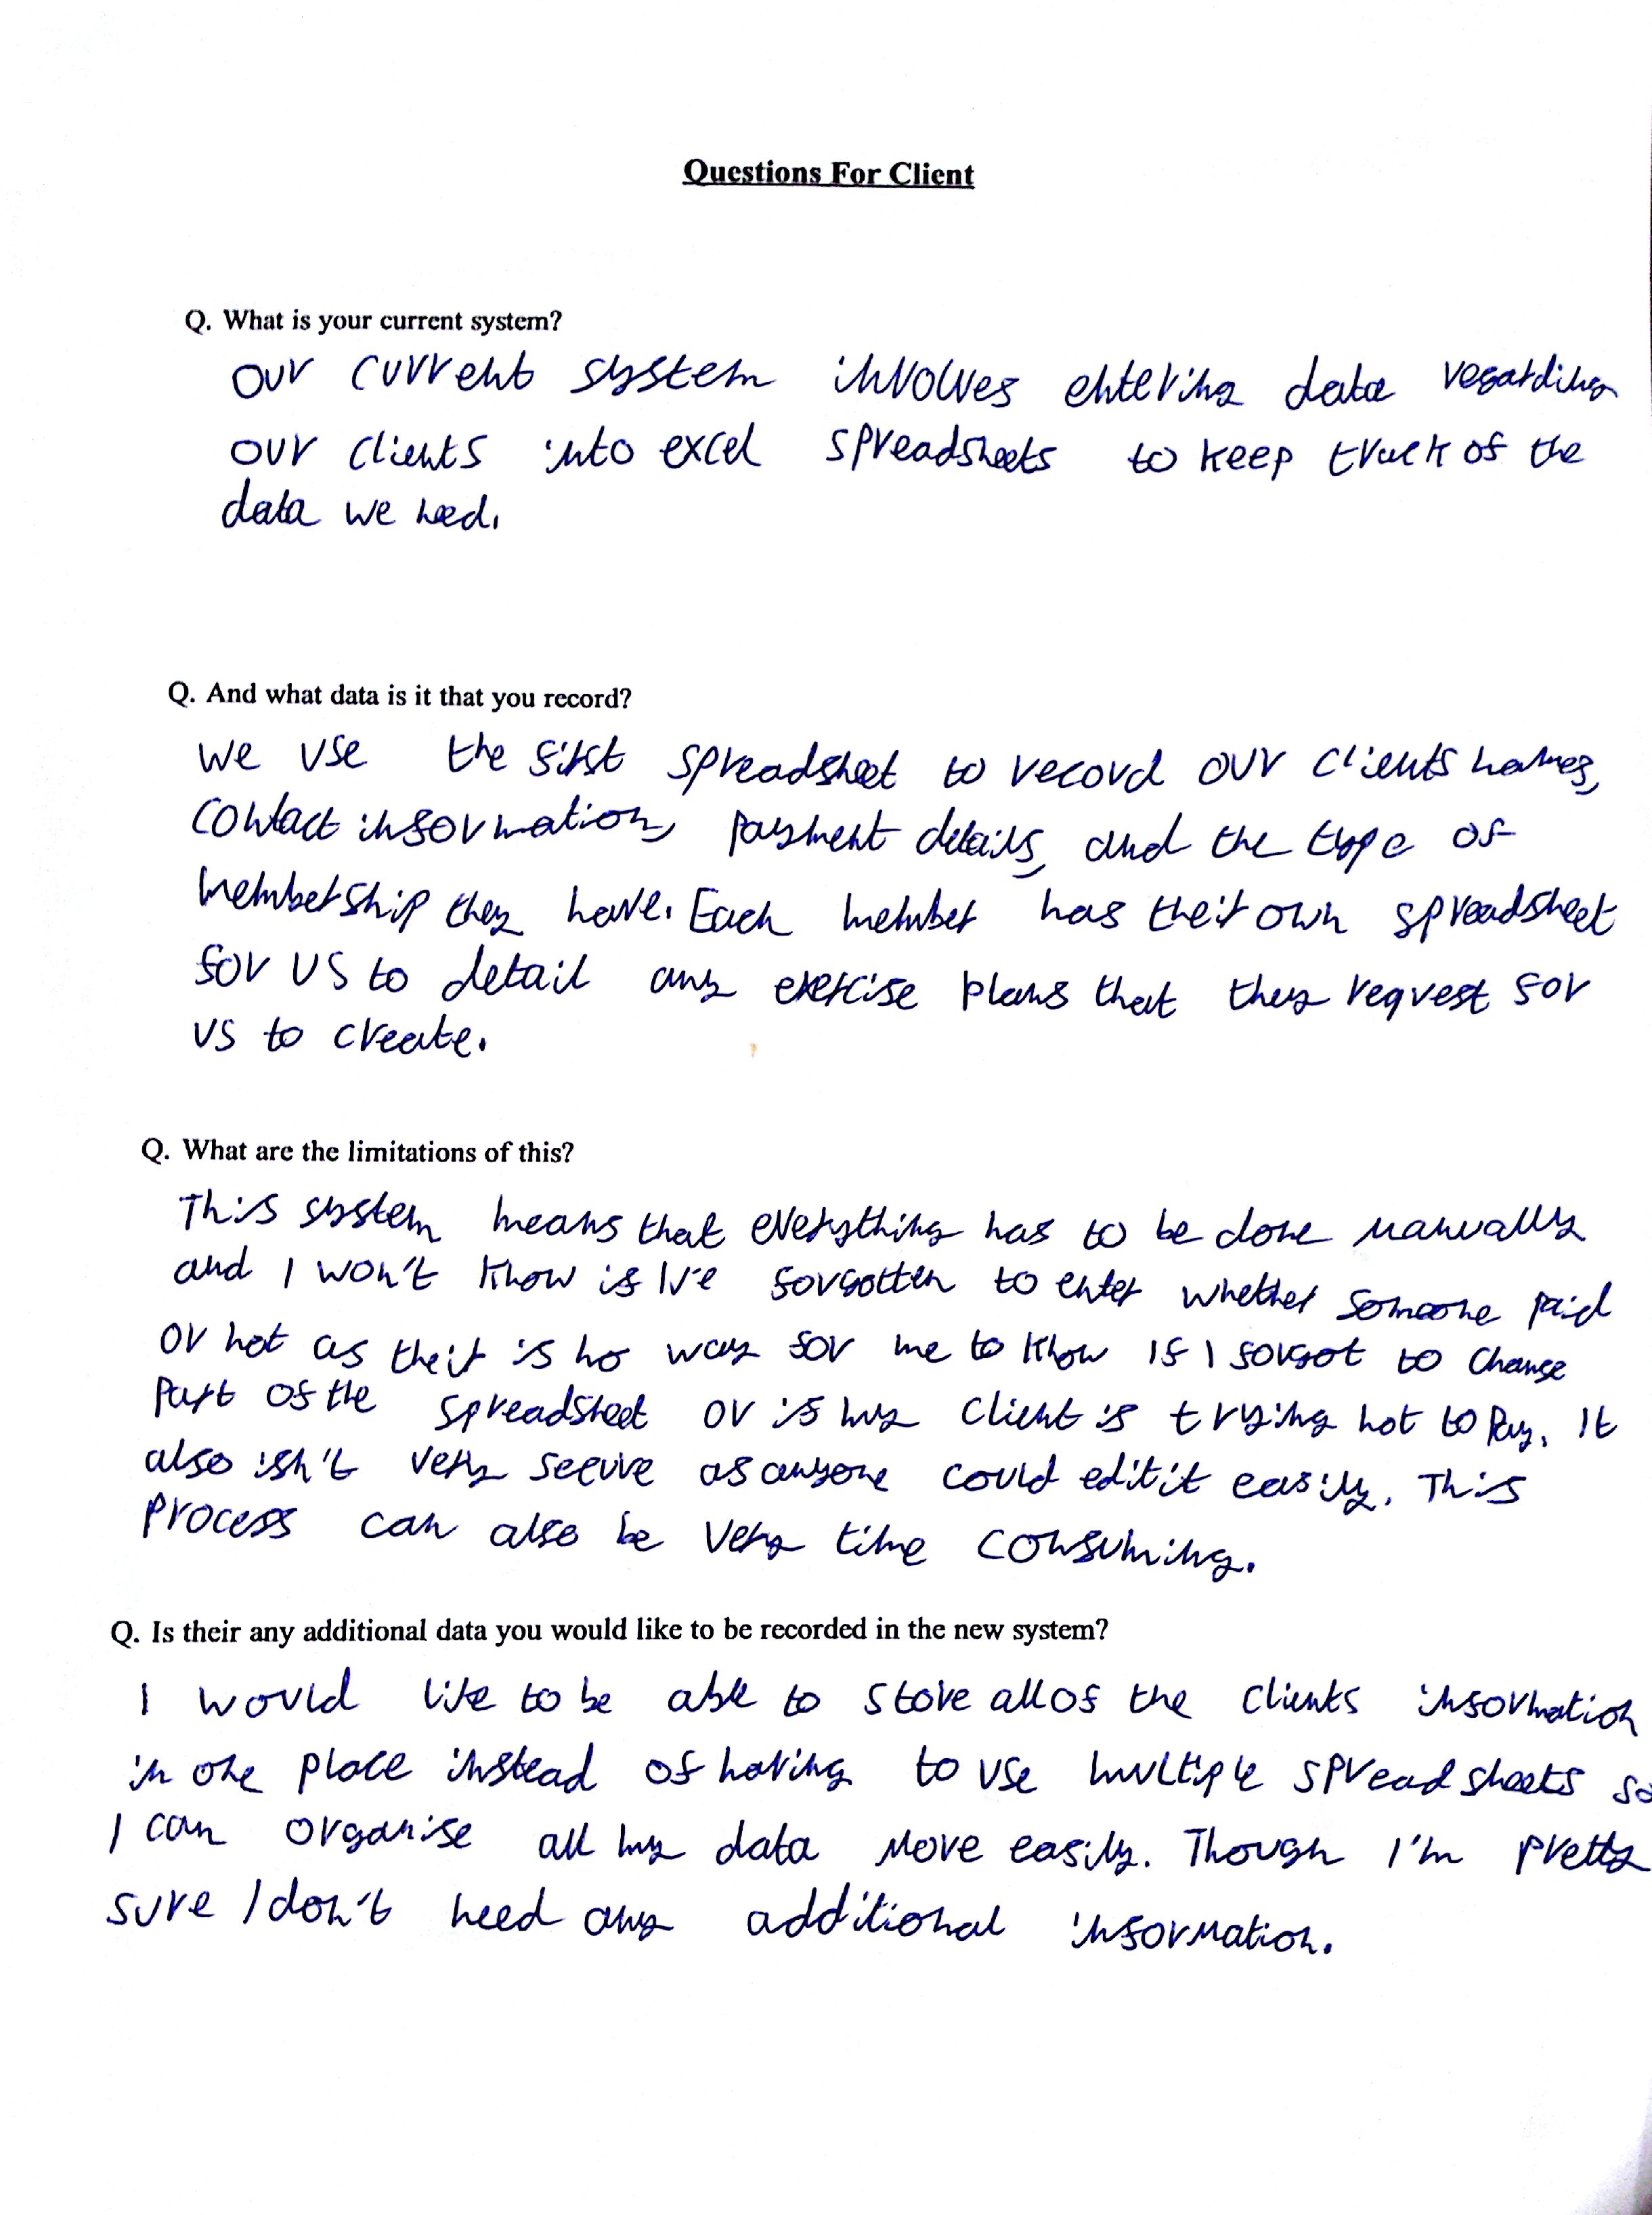 Questions For Client
Q. What is your current system?
our current system involves entering data regarding
our clients into excel spreadsheets to keep track of the
data we need.
Q. And what data is it that you record?
we use the first spreadsheet to record our clients names,
contact information, payment details, and the type of
membership they have. Each member has their own spreadsheet
for us to detail any exercise plans that they request for
us to create.
Q. What are the limitations of this?
This system means that everything has to be done manually
and I won't know if I've forgotten to enter whether someone paid
or not as their is no way for me to know if I forgot to change
part of the spreadsheet or if my client is trying not to pay. It
also isn't very secure as anyone could edit it easily. This
process can also be very time consuming.
Q. Is their any additional data you would like to be recorded in the new system?
I would like to be able to store all of the clients information
in one place instead of having to use multiple spreadsheets so
I can organise all my data more easily. Though I'm pretty
sure I don't need any additional information.